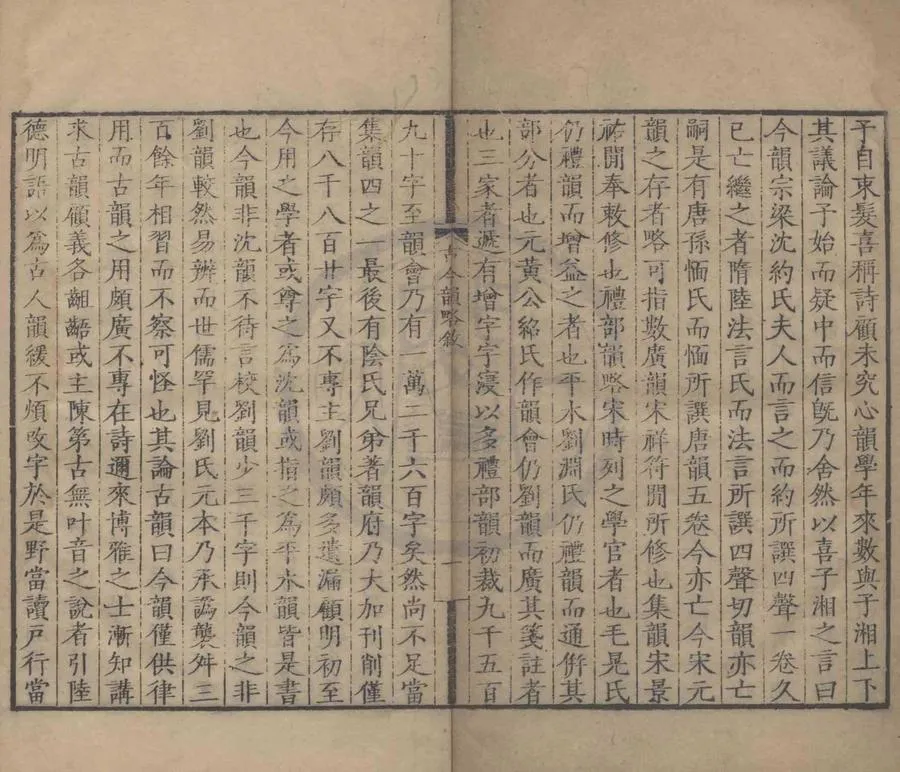 予自束髮喜稱詩顧未究心韻學年來數與子湘上下
其議論予始而疑中而信旣乃舍然以喜子湘之言曰
今韻宗梁沈約氏夫人而言之而約所譔四聲一卷久
已亡繼之者隋陸法言氏而法言所譔四聲切韻亦亡
嗣是有唐孫愐氏而愐所譔唐韻五卷今亦亡今宋元
韻之存者略可指數廣韻宋祥符閒所修也集韻宋景
祐閒奉敕修也禮部韻略宋時列之學官者也毛晃氏
仍禮韻而增益之者也平水劉淵氏仍禮韻而通倂其
部分者也元黃公紹氏作韻會仍劉韻而廣其箋註者
也三家者遞有增字字寖以多禮部韻初裁九千五百
古今韻略敘
一
九十字至韻會乃有一萬二千六百字矣然尚不足當
集韻四之一最後有陰氏兄弟著韻府乃大加刊削僅
存八千八百廿字又不專主劉韻頗多遺漏顧明初至
今用之學者或尊之爲沈韻或指之爲平水韻皆是書
也今韻非沈韻不待言校劉韻少三千字則今韻之非
劉韻較然易辨而世儒罕見劉氏元本乃承譌襲舛三
百餘年相習而不察可怪也其論古韻曰今韻僅供律
用而古韻之用頗廣不專在詩邇來博雅之士漸知講
求古韻顧義各齟齬或主陳第古無叶音之說者引陸
德明語以爲古人韻緩不煩改字於是野當讀戸行當